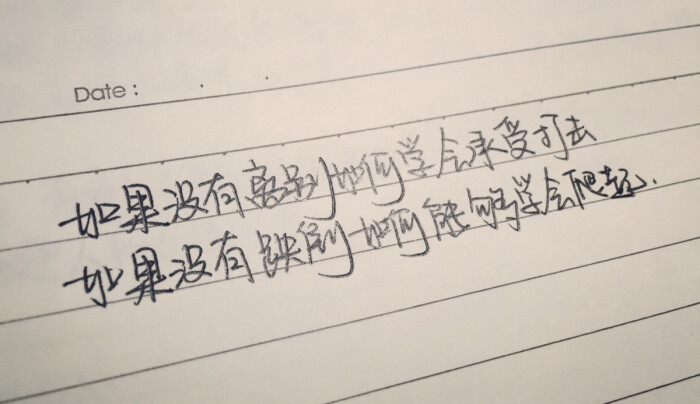 Date :
如果没有离别如何学会承受打击
如果没有跌倒如何能够学会爬起.